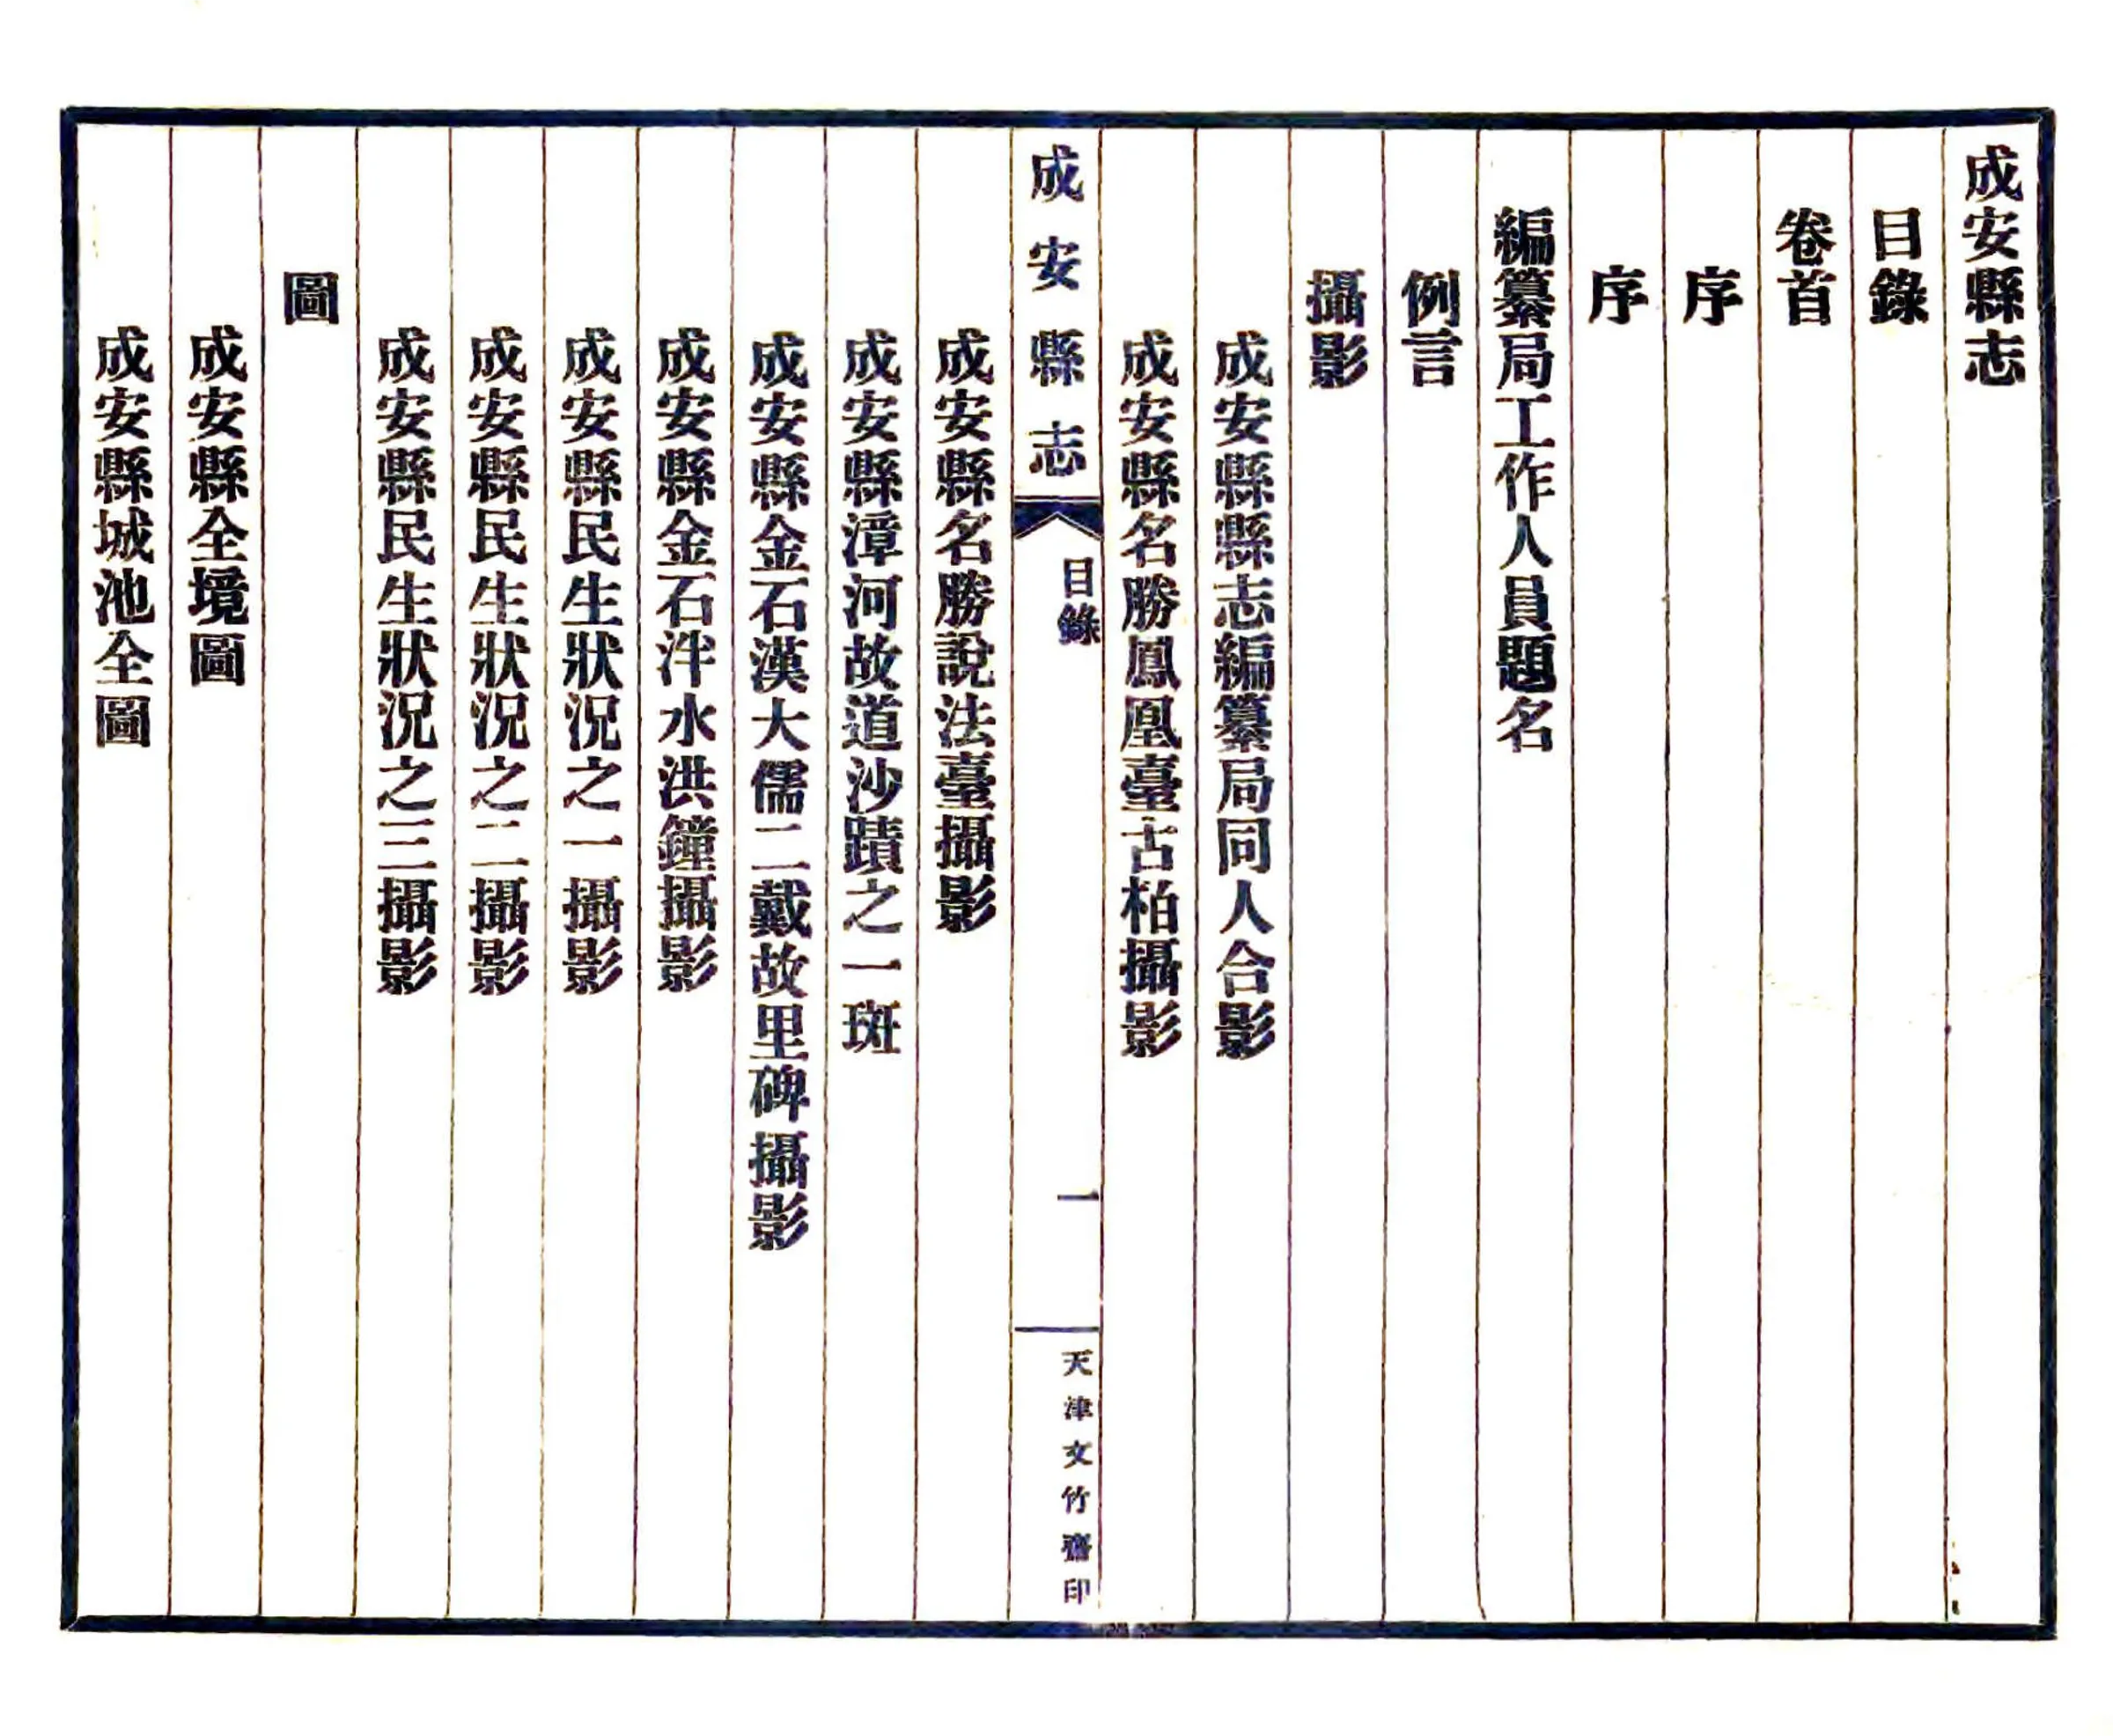 成安縣志
目錄
卷首
序
序
編纂局工作人員題名
例言
攝影
成安縣縣志編纂局同人合影
成安縣名勝鳳凰臺古柏攝影
成安縣志
目錄
一
天津文竹齋印
成安縣名勝說法臺攝影
成安縣漳河故道沙蹟之一斑
成安縣金石漢大儒二戴故里碑攝影
成安縣金石泮水洪鐘攝影
成安縣民生狀況之一攝影
成安縣民生狀況之二攝影
成安縣民生狀況之三攝影
圖
成安縣全境圖
成安縣城池全圖